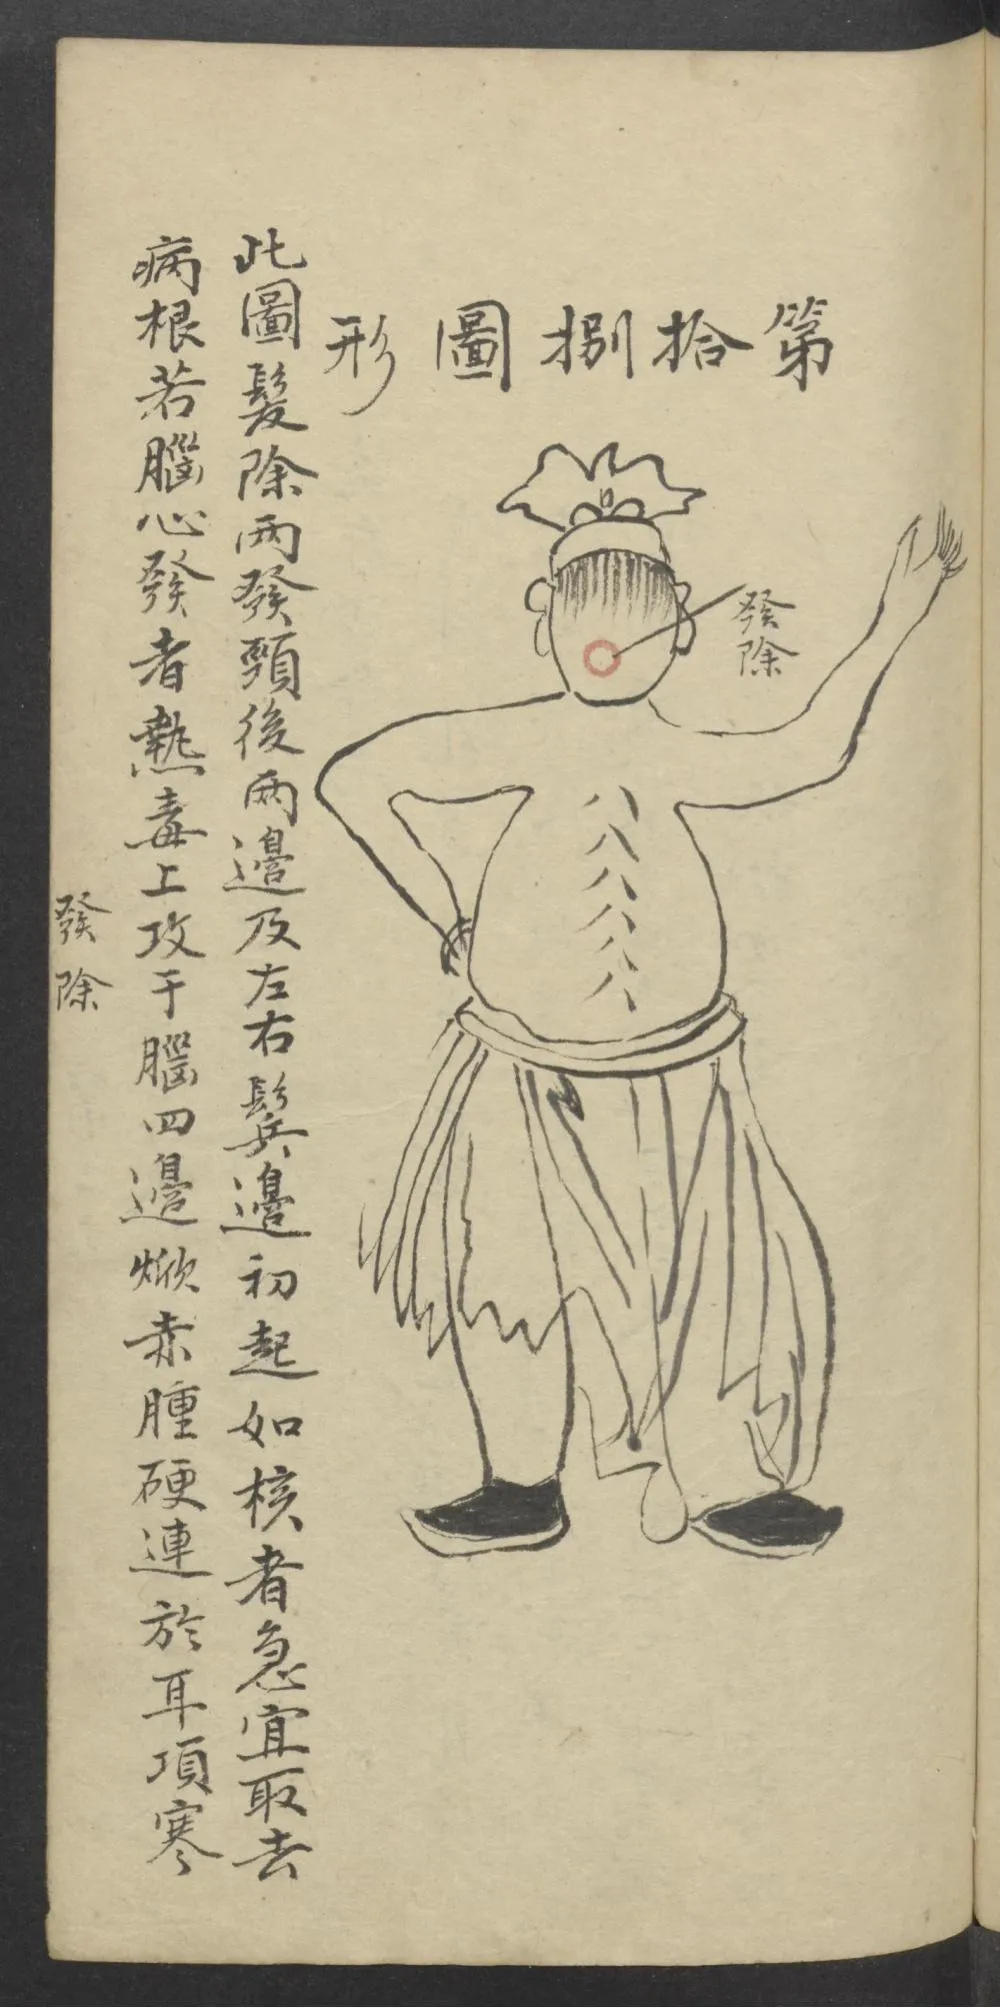 第拾捌圖形
發除
此圖髮除兩發頸後兩邊及左右鬂邊初起如核者急宜取去
病根若腦心發者熱毒上攻于腦四邊焮赤腫硬連於耳項寒
發除